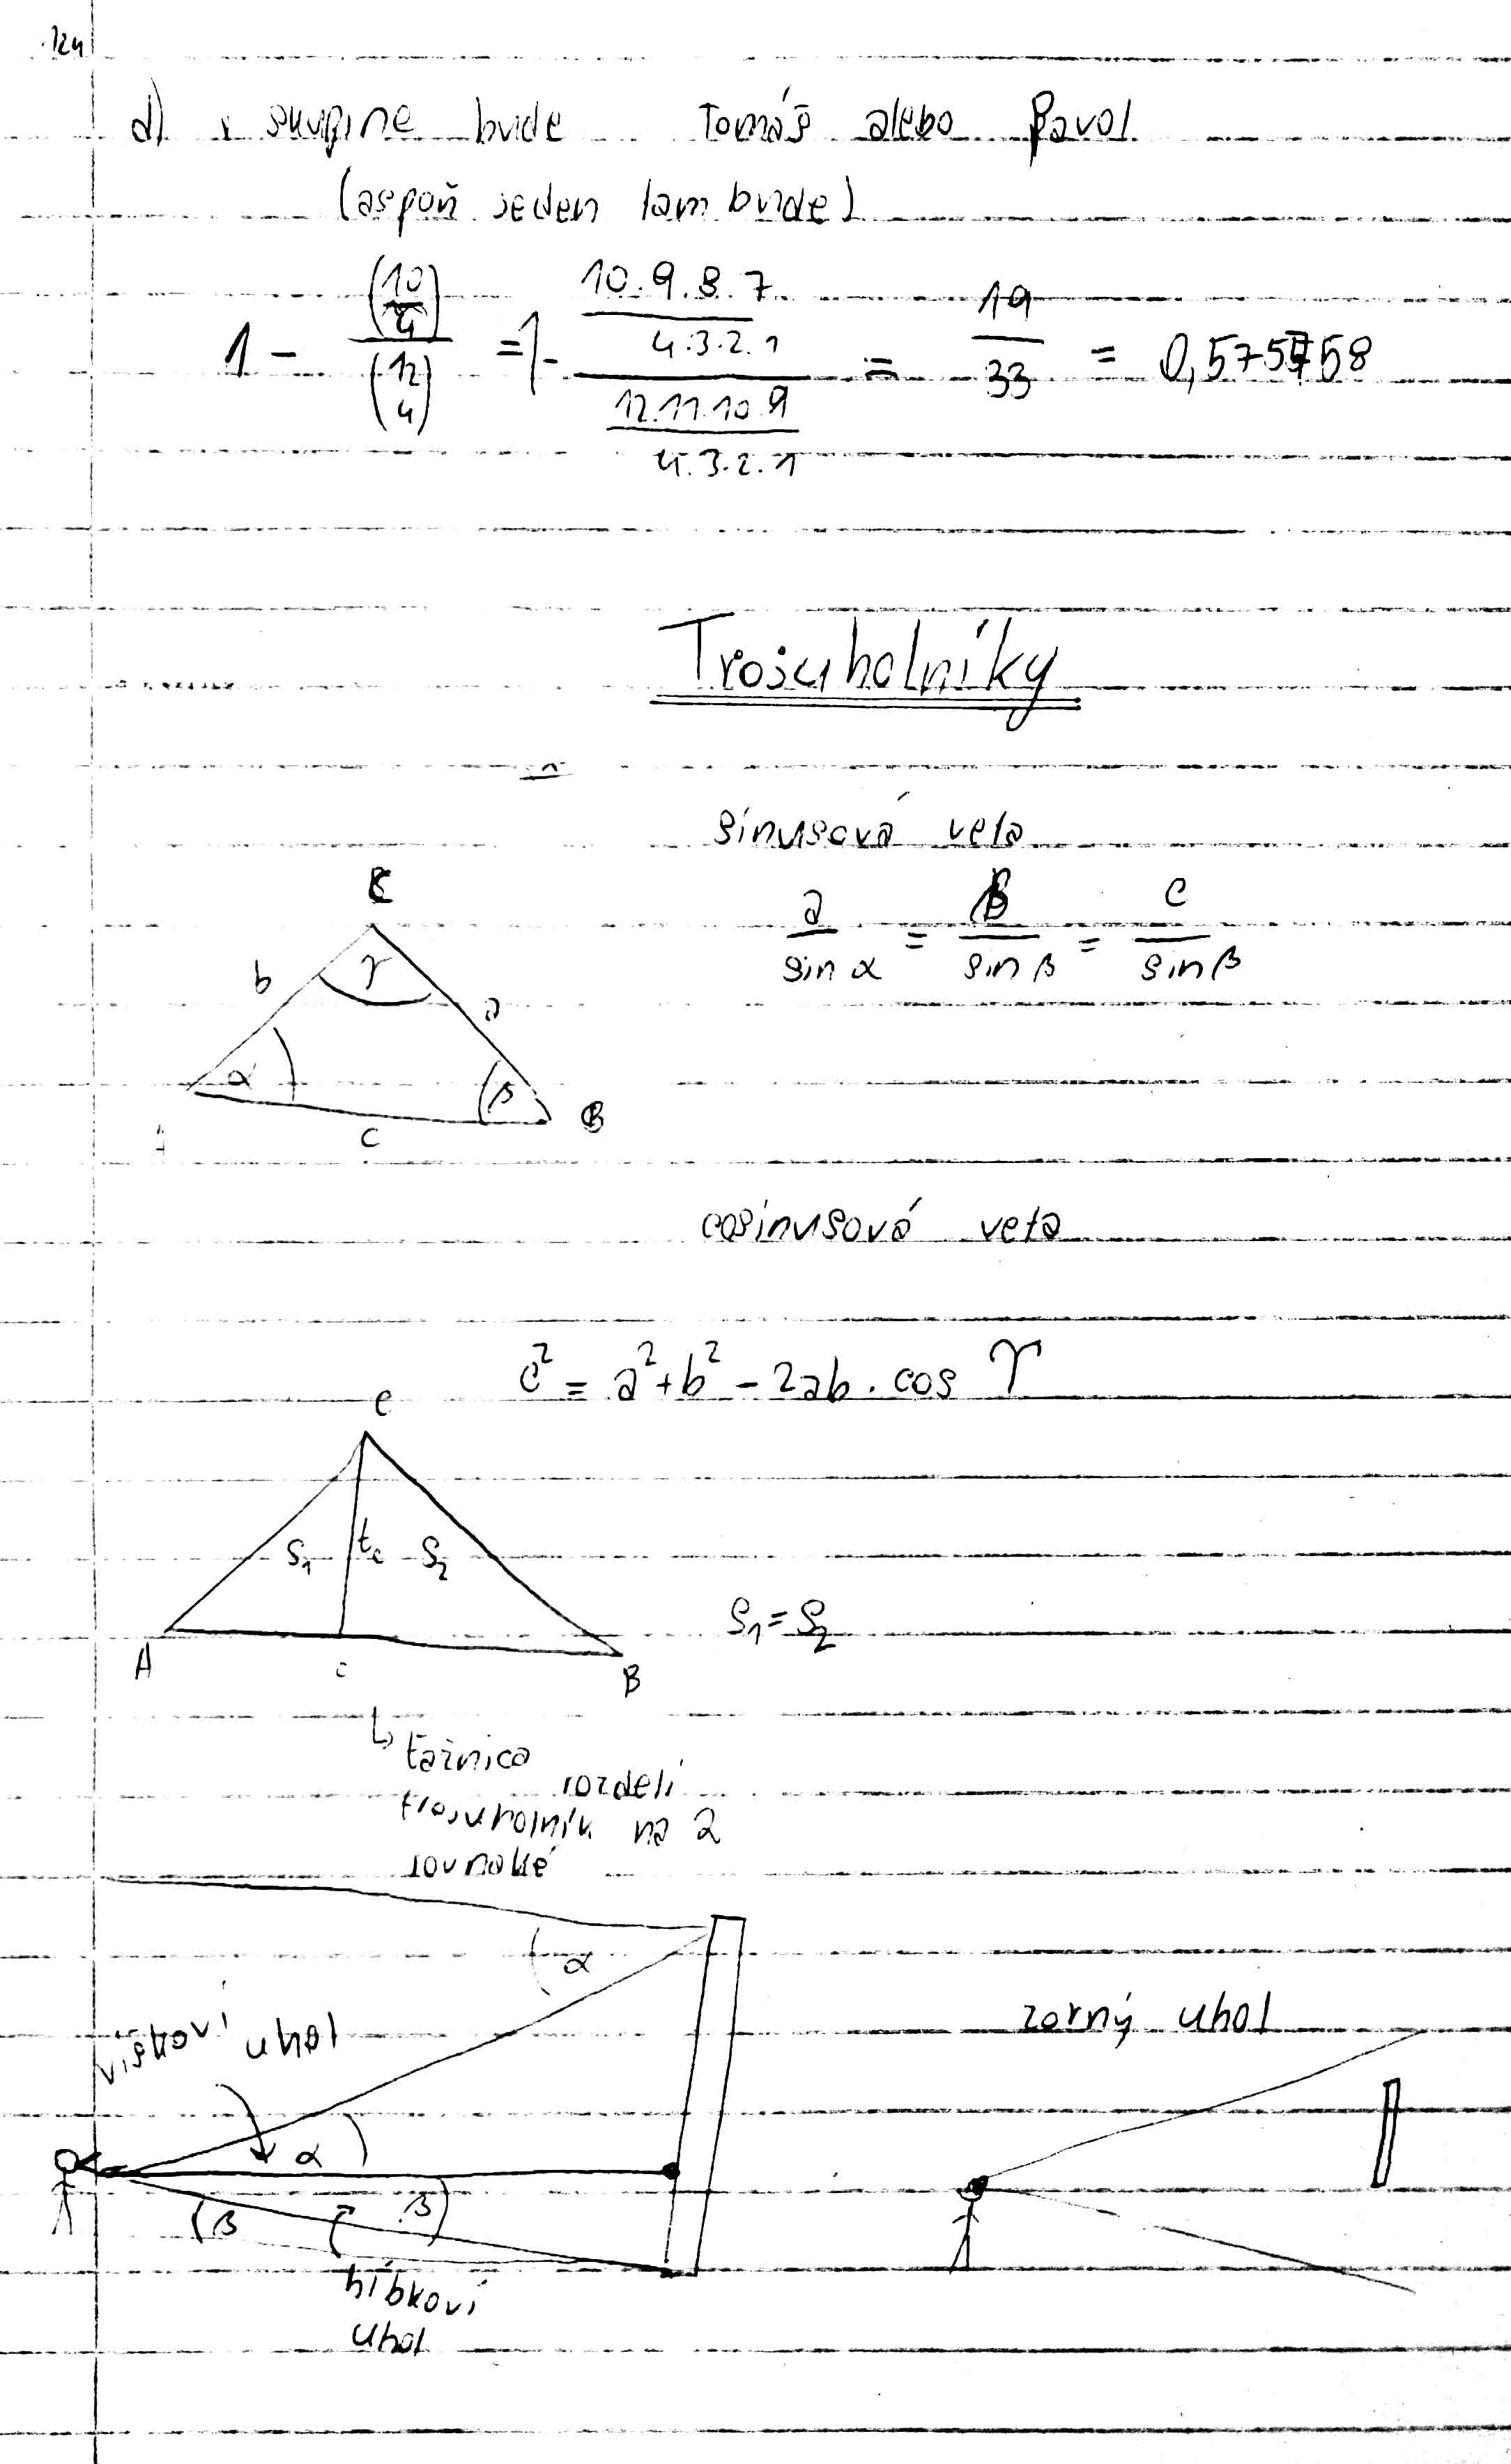 124
d) v skupine bude Tomáš alebo Pavol
(aspoň jeden tam bude)
1 - \frac{\binom{10}{4}}{\binom{12}{4}} = 1 - \frac{\frac{10.9.8.7}{4.3.2.1}}{\frac{12.11.10.9}{4.3.2.1}} = \frac{19}{33} = 0,575758
Trojuholníky
sinusová veta
\frac{a}{sin α} = \frac{b}{sin β} = \frac{c}{sin β}
C
b γ a
α β B
c
cosinusová veta
c² = a² + b² - 2ab . cos γ
C
S₁ t_c S₂
S₁ = S₂
A c B
↳ ťažnica
rozdelí
trojuholník na 2
rovnaké
α
výškoví uhol
zorný uhol
α
β β
hĺbkoví
uhol